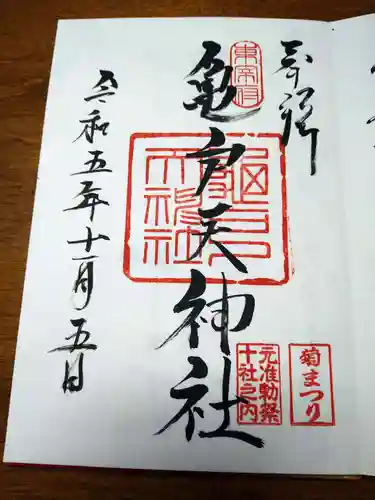 奉拝
東宰府
亀戸天神社
龜戸
天神社
元准勅祭
十社之内
菊まつり
令和五年十一月五日